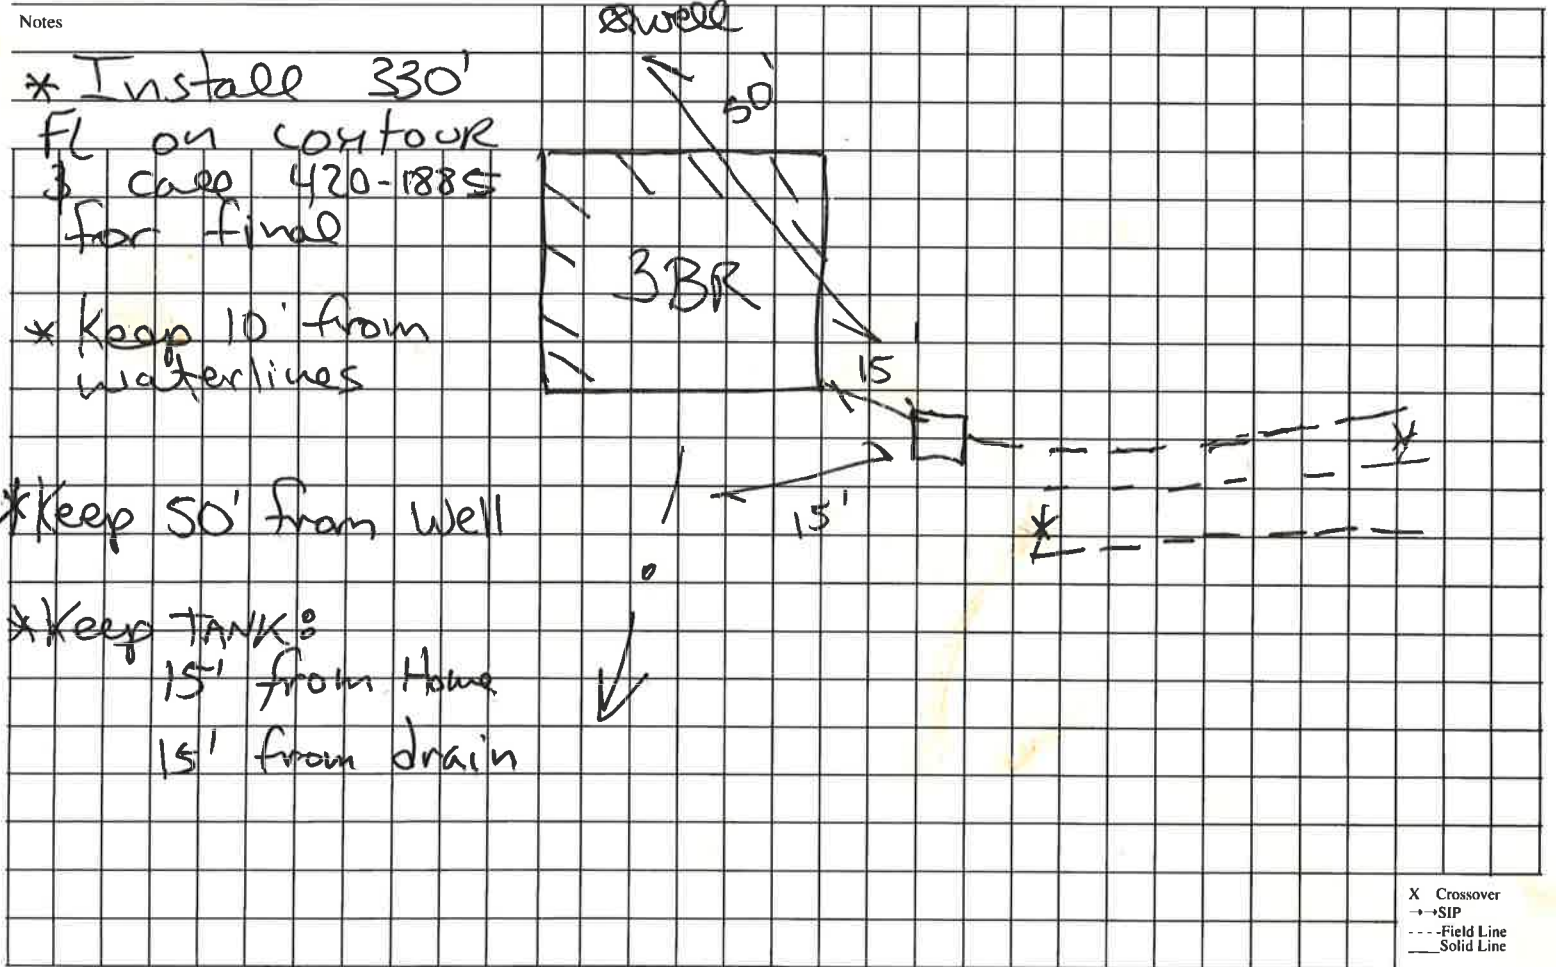 Notes
* Install 330'
FL on contour
& call 420-1885
for final
* Keep 10' from
waterlines
*Keep 50' from Well
*Keep TANK:
15' from Home
15' from drain
⊗well
50'
3BR
15'
15'
X Crossover
→→SIP
----Field Line
___Solid Line